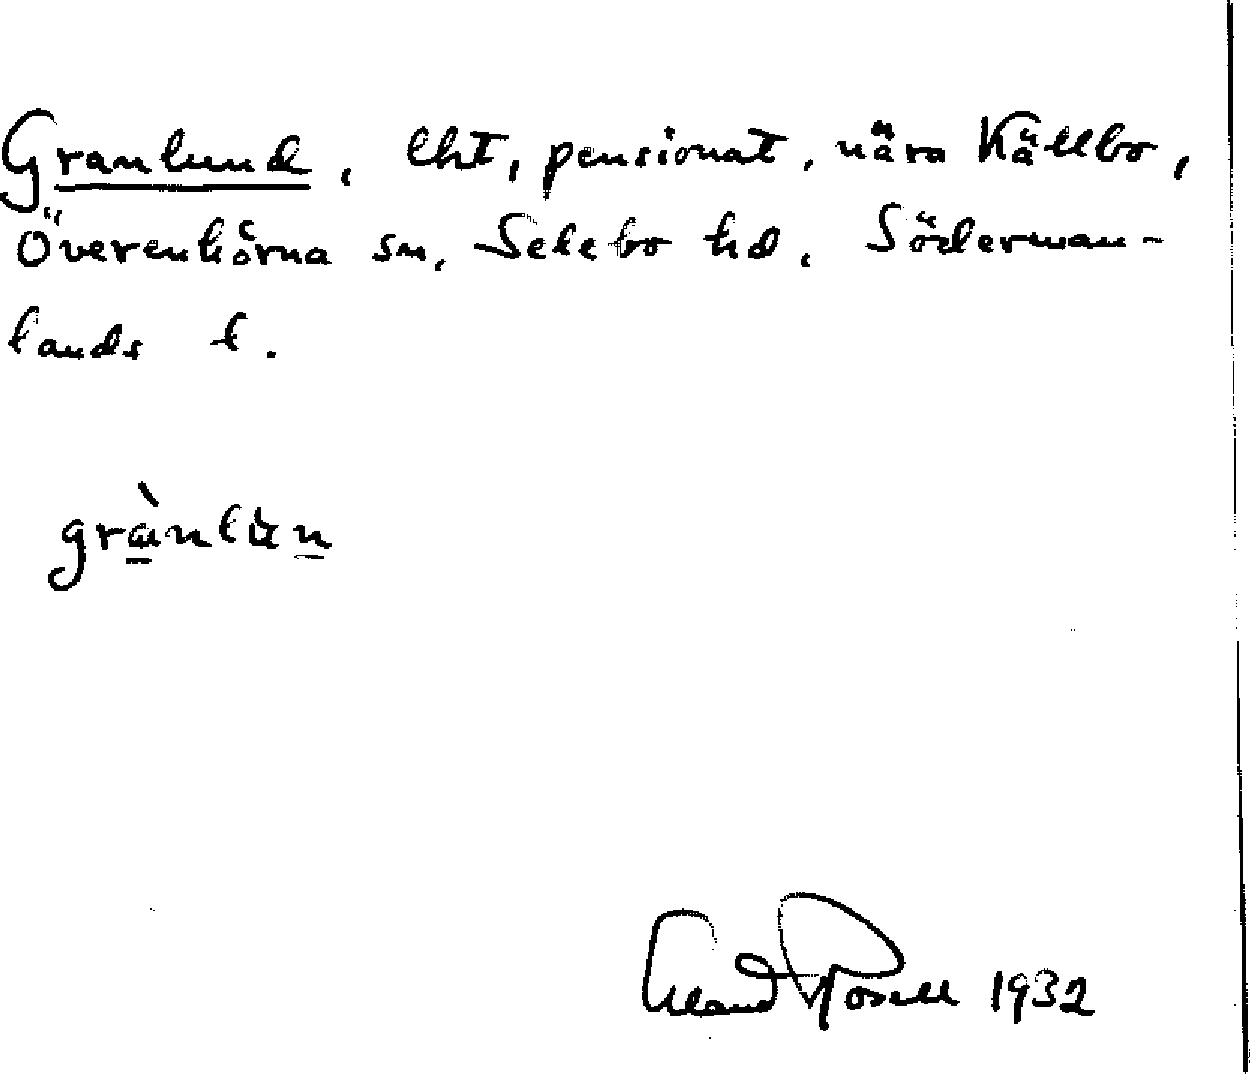 Granlund, lht, pensionat, nära Källbo,
Överenhörna sn, Selebo hd, Söderman-
lands l.
grànlùn
Rosell 1932